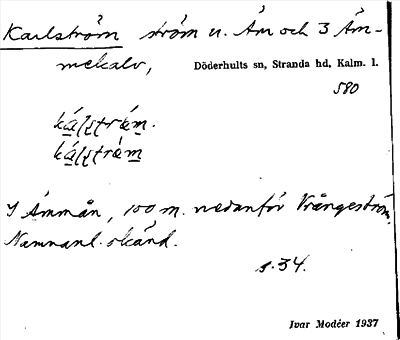 Karlström ström u. Åm och 3 Åm-
mekalv,
Döderhults sn, Stranda hd, Kalm. l.
580
I Åmmån, 100 m. nedanför Vrångeström.
Namnanl. okänd.
s. 34.
Ivar Modéer 1937